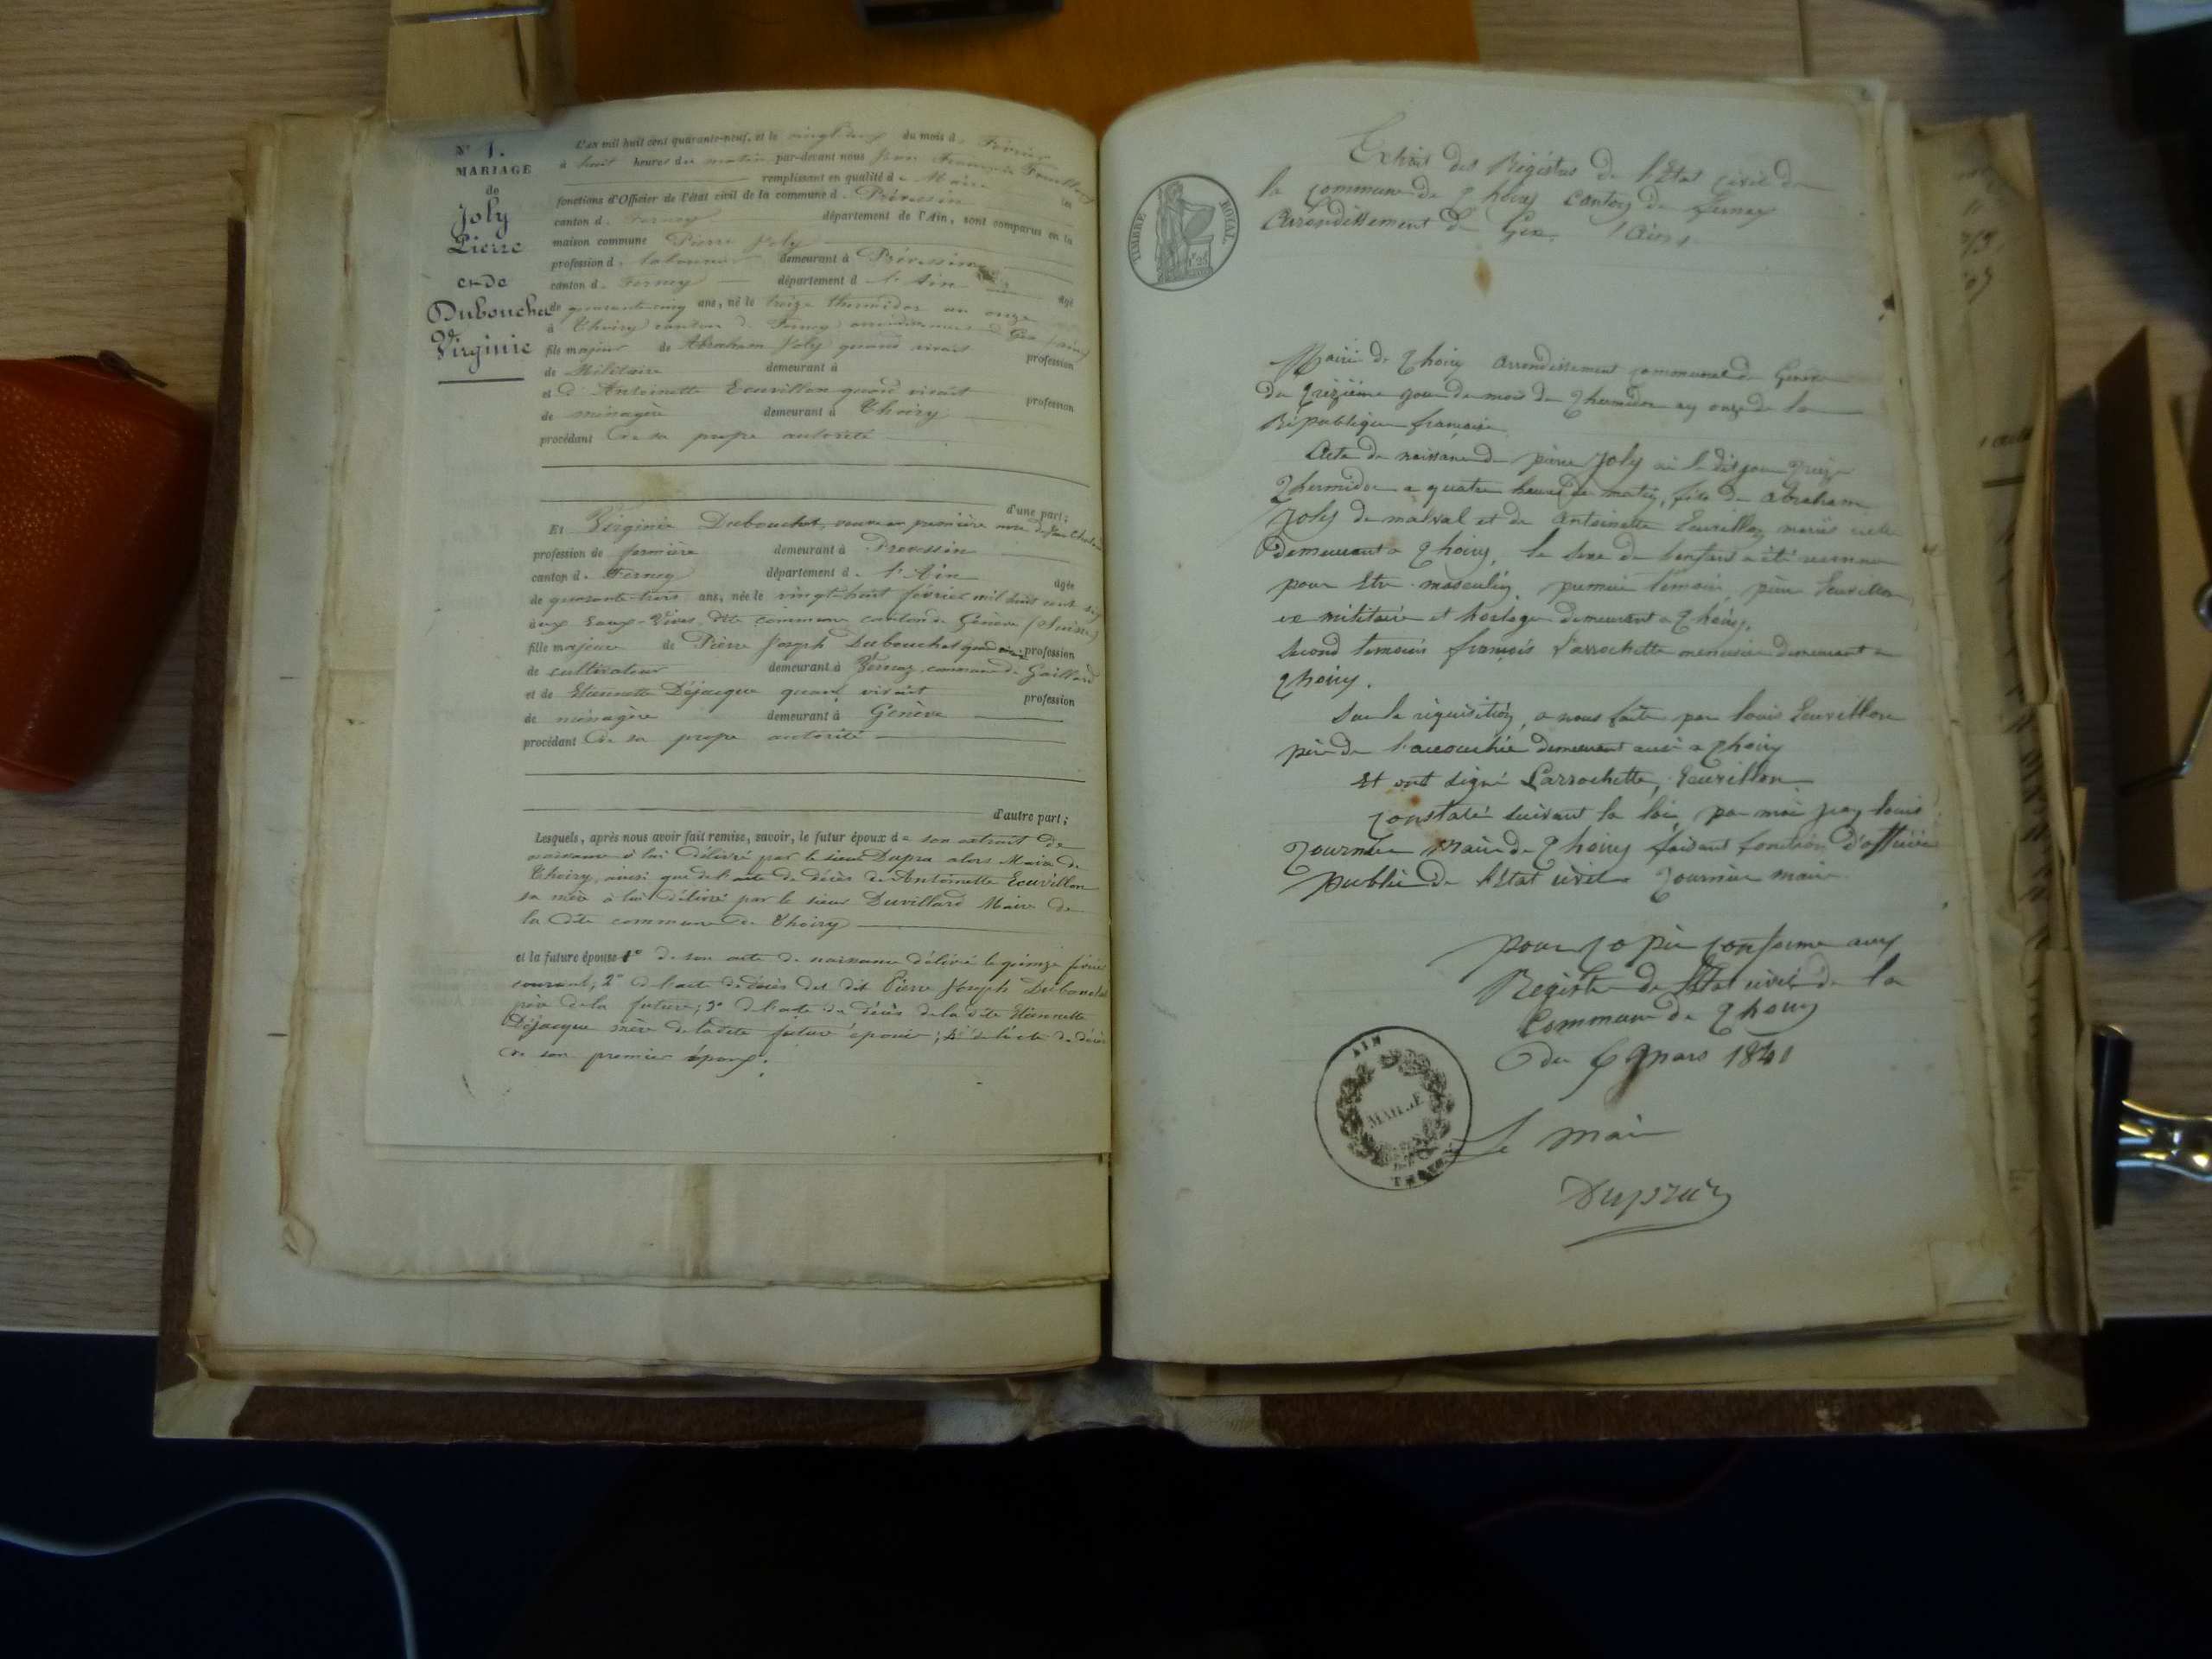 N° 1.
MARIAGE
de
Joly
Pierre
et de
Dubouchet
Virginie
L'an mil huit cent quarante-neuf, et le du mois de Février
à huit heures du matin par-devant nous Jean François
remplissant en qualité de Maire les
fonctions d'Officier de l'état civil de la commune d. Prévessin
canton d. Ferney département de l'Ain, sont comparus en la
maison commune Pierre Joly
profession d. laboureur demeurant à Prevessin
canton d. Ferney département d l'Ain âgé
de quarante-cinq ans, né le treize thermidor an onze
à Thoiry canton de Ferney arrondissement de Gex (Ain)
fils majeur de Abraham Joly quand vivait profession
de Militaire demeurant à
et d'Antoinette Ecuvillon quand vivait profession
de ménagère demeurant à Thoiry
procédant de sa propre autorité
d'une part;
Et Virginie Dubouchet, veuve en première noce de
profession de fermière demeurant à Prevessin
canton d. Ferney département d. l'Ain âgée
de quarante-trois ans, née le vingt-huit février mil huit cent six
aux Eaux-Vives, dite commune canton de Genève (Suisse)
fille majeure de Pierre Joseph Dubouchet quand profession
de cultivateur demeurant à commune de Gaillard
et de Etiennette Déjacque quand vivait profession
de ménagère demeurant à Genève
procédant de sa propre autorité
d'autre part;
Lesquels, après nous avoir fait remise, savoir, le futur époux de son extrait de
naissance à lui délivré par le sieur Dupra alors Maire de
Thoiry, ainsi que de l'acte de décès de Antoinette Ecuvillon
sa mère à lui délivré par le sieur Duvillard Maire de
la dite commune de Thoiry
et la future épouse 1° de son acte de naissance délivré le quinze février
courant; 2° de l'acte de décès du dit Pierre Joseph Dubouchet
père de la future; 3° de l'acte de décès de la dite Etiennette
Déjacque mère de la dite future épouse; 4° de l'acte de décès
de son premier époux.
TIMBRE ROYAL
Extrait des Régistres de l'Etat civil de
la commune de Thoiry canton de Ferney
Arrondissement de Gex (Ain)
Mairie de Thoiry arrondissement communal de Genève
du treizième jour du mois de Thermidor an onze de la
République française
Acte de naissance de pierre Joly né le dit jour treize
Thermidor a quatre heures de matin, fils de abraham
Joly de malval et de antoinette Ecuvillon mariés
demeurant a Thoiry, le sexe de l'enfant a été reconnu
pour Etre masculin, premier temoin, pierre Ecuvillon
ex militaire et horloger demeurant a Thoiry,
second temoin françois Larrochette menuisier demeurant a
Thoiry.
Sur la réquisition, a nous faite par louis Ecuvillon
père de l'accouchée demeurant aussi a Thoiry
Et ont signé Larrochette, Ecuvillon
constaté suivant la loi, par moi jean louis
Tournier Maire de Thoiry faisant fonction d'officier
public de l'Etat civil Tournier maire
pour copie conforme aux
Registre de l'Etat civil de la
commune de Thoiry
du 6 mars 1841
AIN
MAIRIE
Le maire
Dupraz